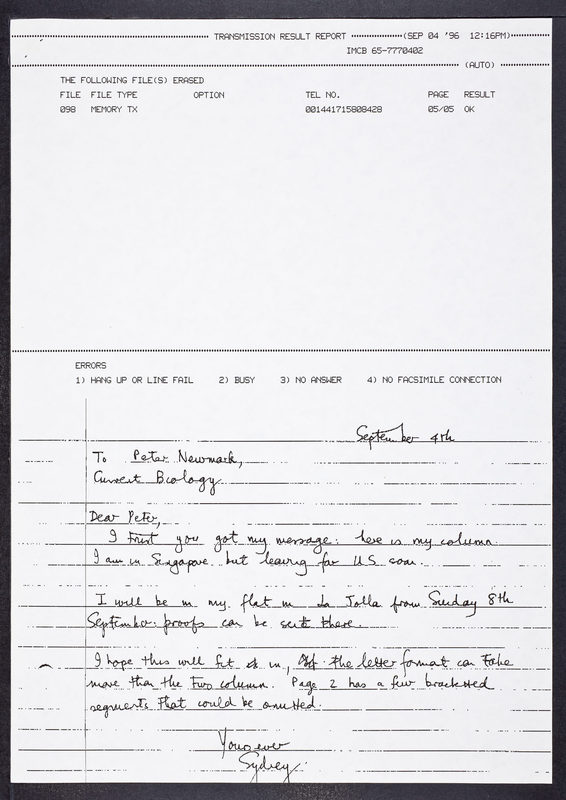 TRANSMISSION RESULT REPORT (SEP 04 '96 12:16PM)
IMCB 65-7770402
(AUTO)
THE FOLLOWING FILE(S) ERASED
FILE FILE TYPE OPTION TEL NO. PAGE RESULT
098 MEMORY TX 001441715808428 05/05 OK
ERRORS
1) HANG UP OR LINE FAIL 2) BUSY 3) NO ANSWER 4) NO FACSIMILE CONNECTION
September 4th
To Peter Newmark,
Current Biology
Dear Peter,
I trust you got my message: here is my column.
I am in Singapore but leaving for US soon.
I will be in my flat in La Jolla from Sunday 8th
September: proofs can be sent there.
I hope this will fit in, the letter format can take
more than the two column. Page 2 has a few bracketed
segments that could be omitted.
Yours ever
Sydney